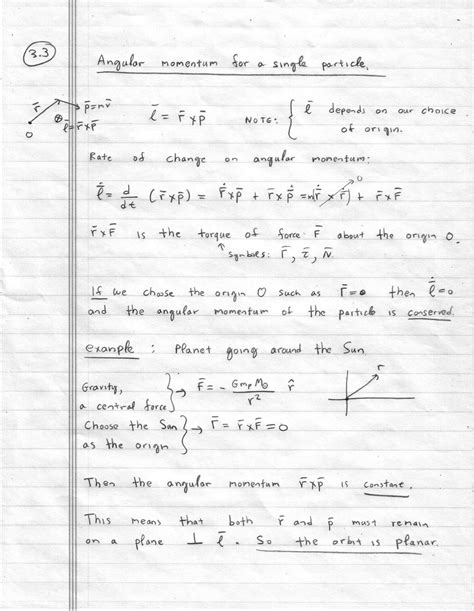 3.3
Angular momentum for a single particle.
r̄ p̄=mv̄
⊗ l̄=r̄×p̄
O
l̄ = r̄×p̄ NOTE: { l̄ depends on our choice
of origin.
Rate of change on angular momentum:
l̄̇ = d/dt (r̄×p̄) = r̄̇×p̄ + r̄×p̄̇ = m(r̄̇ × r̄̇) + r̄×F̄
0
r̄×F̄ is the torque of force F̄ about the origin O.
↑ Symbols: Γ̄, τ̄, N̄
If we choose the origin O such as Γ̄=0 then l̄̇=0
and the angular momentum of the particle is conserved.
example : Planet going around the Sun
Gravity,
a central force } → F̄ = - GmpM⊙/r² r̂
r
Choose the Sun
as the origin } → Γ̄ = r̄×F̄ = 0
Then the angular momentum r̄×p̄ is constant.
This means that both r̄ and p̄ must remain
on a plane ⊥ l̄. So the orbit is planar.